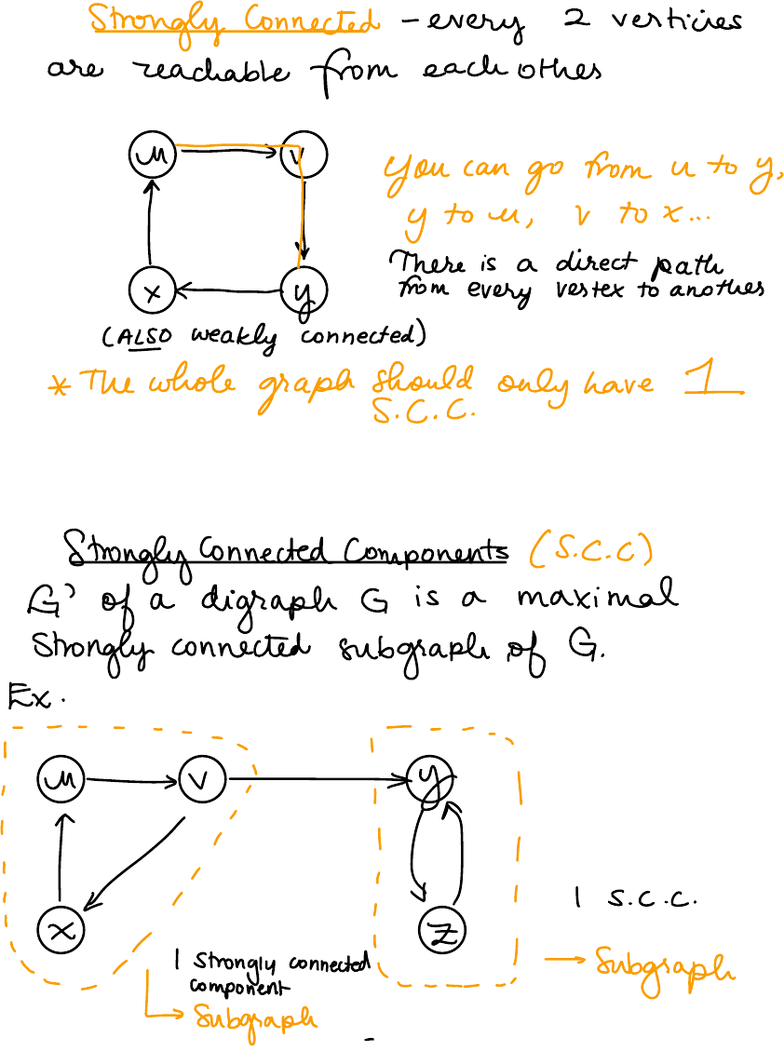 Strongly Connected - every 2 verticies
are reachable from each other
u
v
You can go from u to y,
y to u, v to x...
There is a direct path
from every vertex to another
x
y
(ALSO weakly connected)
* The whole graph should only have 1
S.C.C.
Strongly Connected Components (S.C.C)
G' of a digraph G is a maximal
Strongly connected subgraph of G.
Ex.
u
v
y
x
z
1 S.C.C.
→ Subgraph
1 Strongly connected
component
→ Subgraph